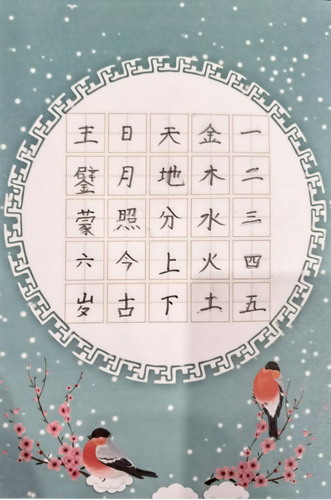 一二三四五
金木水火土
天地分上下
日月照今古
王鐾蒙六岁